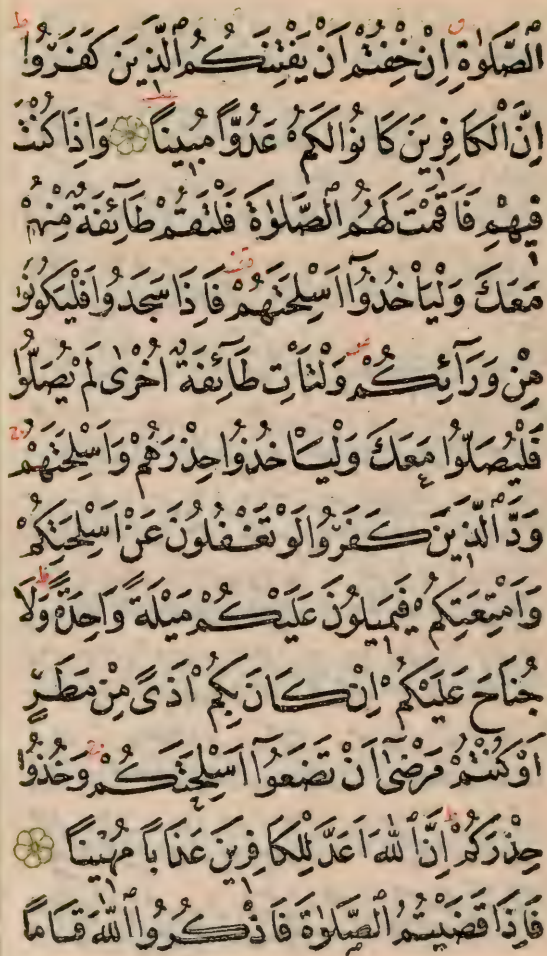 ٱلصَّلٰوةِ اِنْ خِفْتُمْ اَنْ يَفْتِنَكُمُ ٱلَّذِينَ كَفَرُوا
اِنَّ ٱلْكَافِرِينَ كَانُوا لَكُمْ عَدُوًّا مُبِينًا وَاِذَا كُنْتَ
فِيهِمْ فَاَقَمْتَ لَهُمُ ٱلصَّلٰوةَ فَلْتَقُمْ طَآئِفَةٌ مِنْهُمْ
مَعَكَ وَلْيَاْخُذُوٓا اَسْلِحَتَهُمْ فَاِذَا سَجَدُوا فَلْيَكُونُوا
مِنْ وَرَآئِكُمْ وَلْتَاْتِ طَآئِفَةٌ اُخْرٰى لَمْ يُصَلُّوا
فَلْيُصَلُّوا مَعَكَ وَلْيَاْخُذُوا حِذْرَهُمْ وَاَسْلِحَتَهُمْ
وَدَّ ٱلَّذِينَ كَفَرُوا لَوْ تَغْفُلُونَ عَنْ اَسْلِحَتِكُمْ
وَاَمْتِعَتِكُمْ فَيَمِيلُونَ عَلَيْكُمْ مَيْلَةً وَاحِدَةً وَلَا
جُنَاحَ عَلَيْكُمْ اِنْ كَانَ بِكُمْ اَذًى مِنْ مَطَرٍ
اَوْ كُنْتُمْ مَرْضٰىٓ اَنْ تَضَعُوٓا اَسْلِحَتَكُمْ وَخُذُوا
حِذْرَكُمْ اِنَّ ٱللّٰهَ اَعَدَّ لِلْكَافِرِينَ عَذَابًا مُهِينًا
فَاِذَا قَضَيْتُمُ ٱلصَّلٰوةَ فَاذْكُرُوا ٱللّٰهَ قِيَامًا